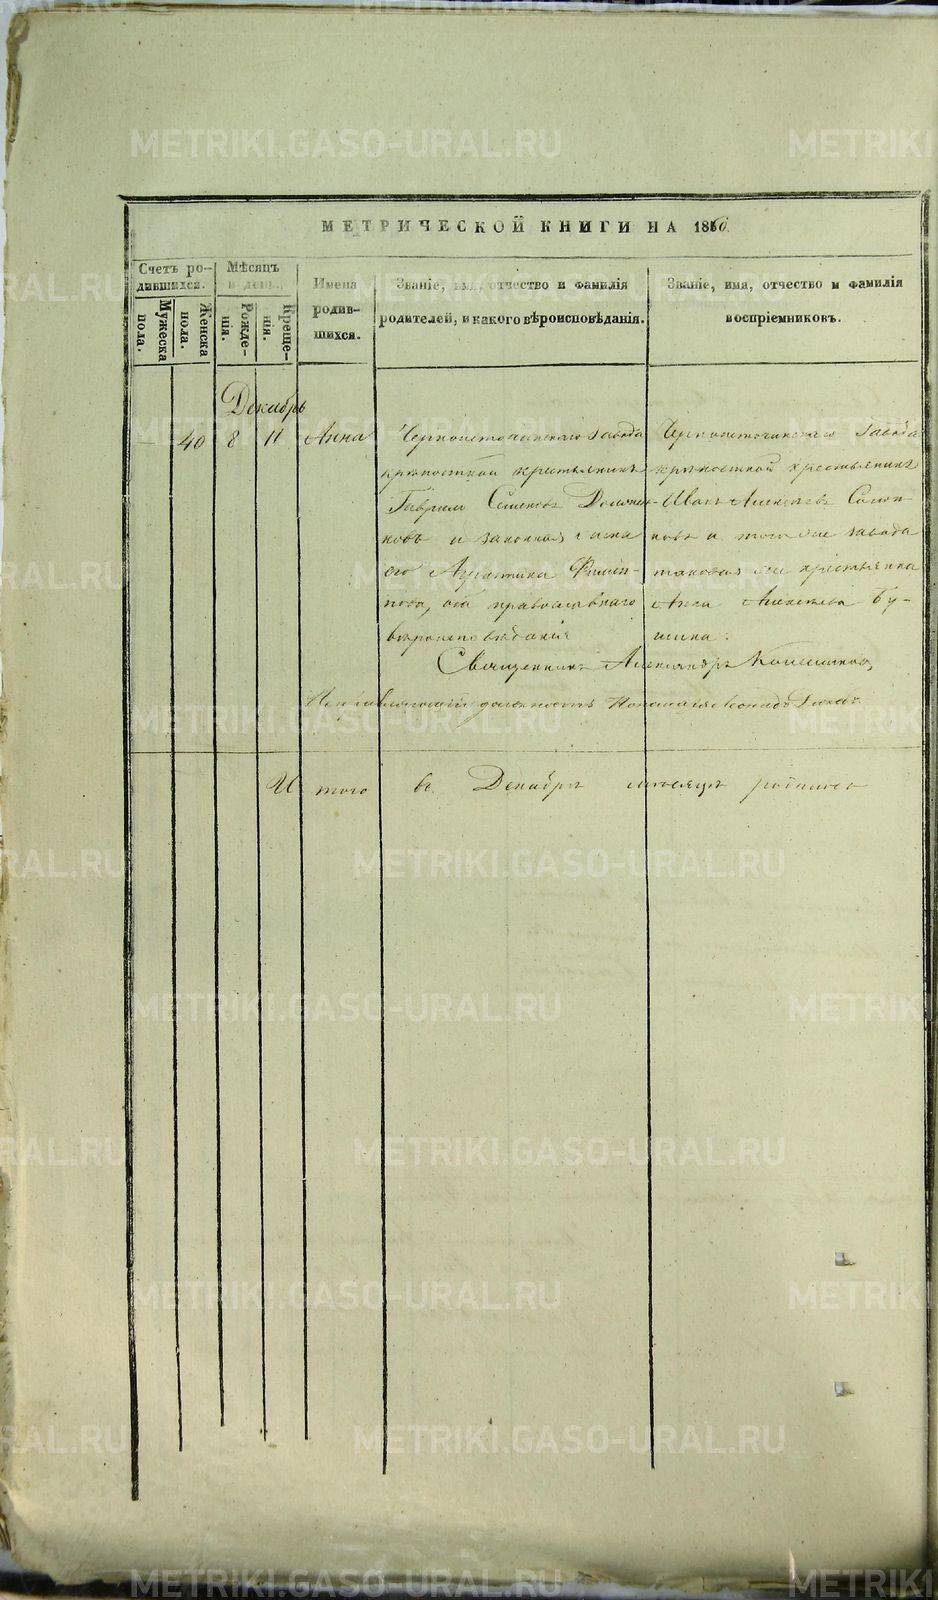 МЕТРИЧЕСКОЙ КНИГИ НА 1860.
Счетъ ро-
дившихся.
Мужеска
пола.
Женска
пола.
Мѣсяцъ
и день.
Рожде-
нія.
Креще-
нія.
Имена
родив-
шихся.
Званіе, имя, отчество и фамилія
родителей, и какого вѣроисповѣданія.
Званіе, имя, отчество и фамилія
воспріемниковъ.
Декабрь
40 8 11 Анна
Черноисточинскаго завода
крѣпостной крестьянинъ
Гаврилъ Семеновъ
и законная жена
его Филип-
пова, оба православнаго
вѣроисповѣданія
Черноисточинскаго завода
крѣпостной крестьянинъ
Иванъ Алексѣевъ
и того же завода
таковая же крестьянка
Анна Алексѣева
Священникъ Александръ
должность
И того въ Декабрѣ мѣсяцѣ родилось
METRIKI.GASO-URAL.RU